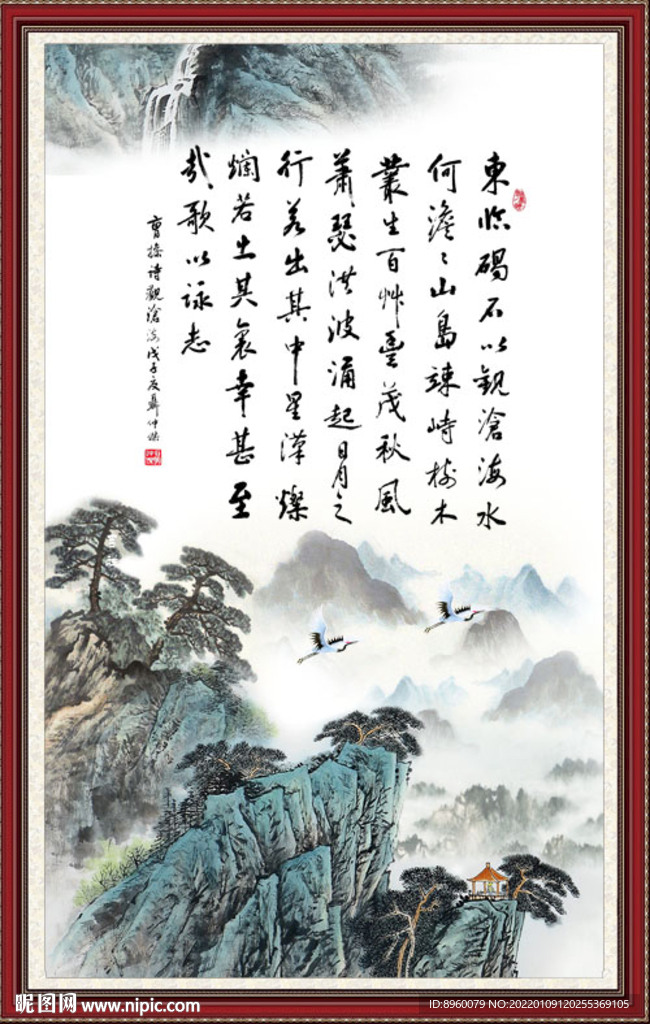 東臨碣石以觀滄海水
何澹々山島竦峙樹木
叢生百艸豐茂秋風
蕭瑟洪波涌起日月之
行若出其中星漢燦
爛若出其裏幸甚至
哉歌以詠志
曹操詩觀滄海戊子夏
昵图网 www.nipic.com
ID:8960079 NO:20220109120255369105